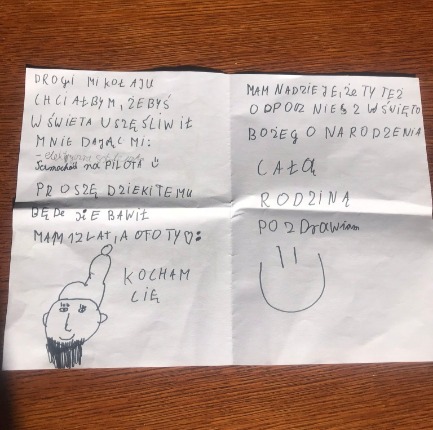 DROGI MIKOŁAJU
CHCIAŁBYM, ŻEBYŚ
W ŚWIĘTA USZĘŚLIWIŁ
MNIE DAJĄC MI:
Samochód na PILOTA
PROSZĘ DZIEKI TEMU
BĘDE SIE BAWIŁ
MAM 12 LAT, A OTO TY♡:
KOCHAM
CIĘ
MAM NADZIEJE, że TY TEŻ
ODPOCZNIESZ W ŚWIĘTO
BOŻEGO NARODZENIA
CAŁĄ
RODZINĄ
POZDrawiam